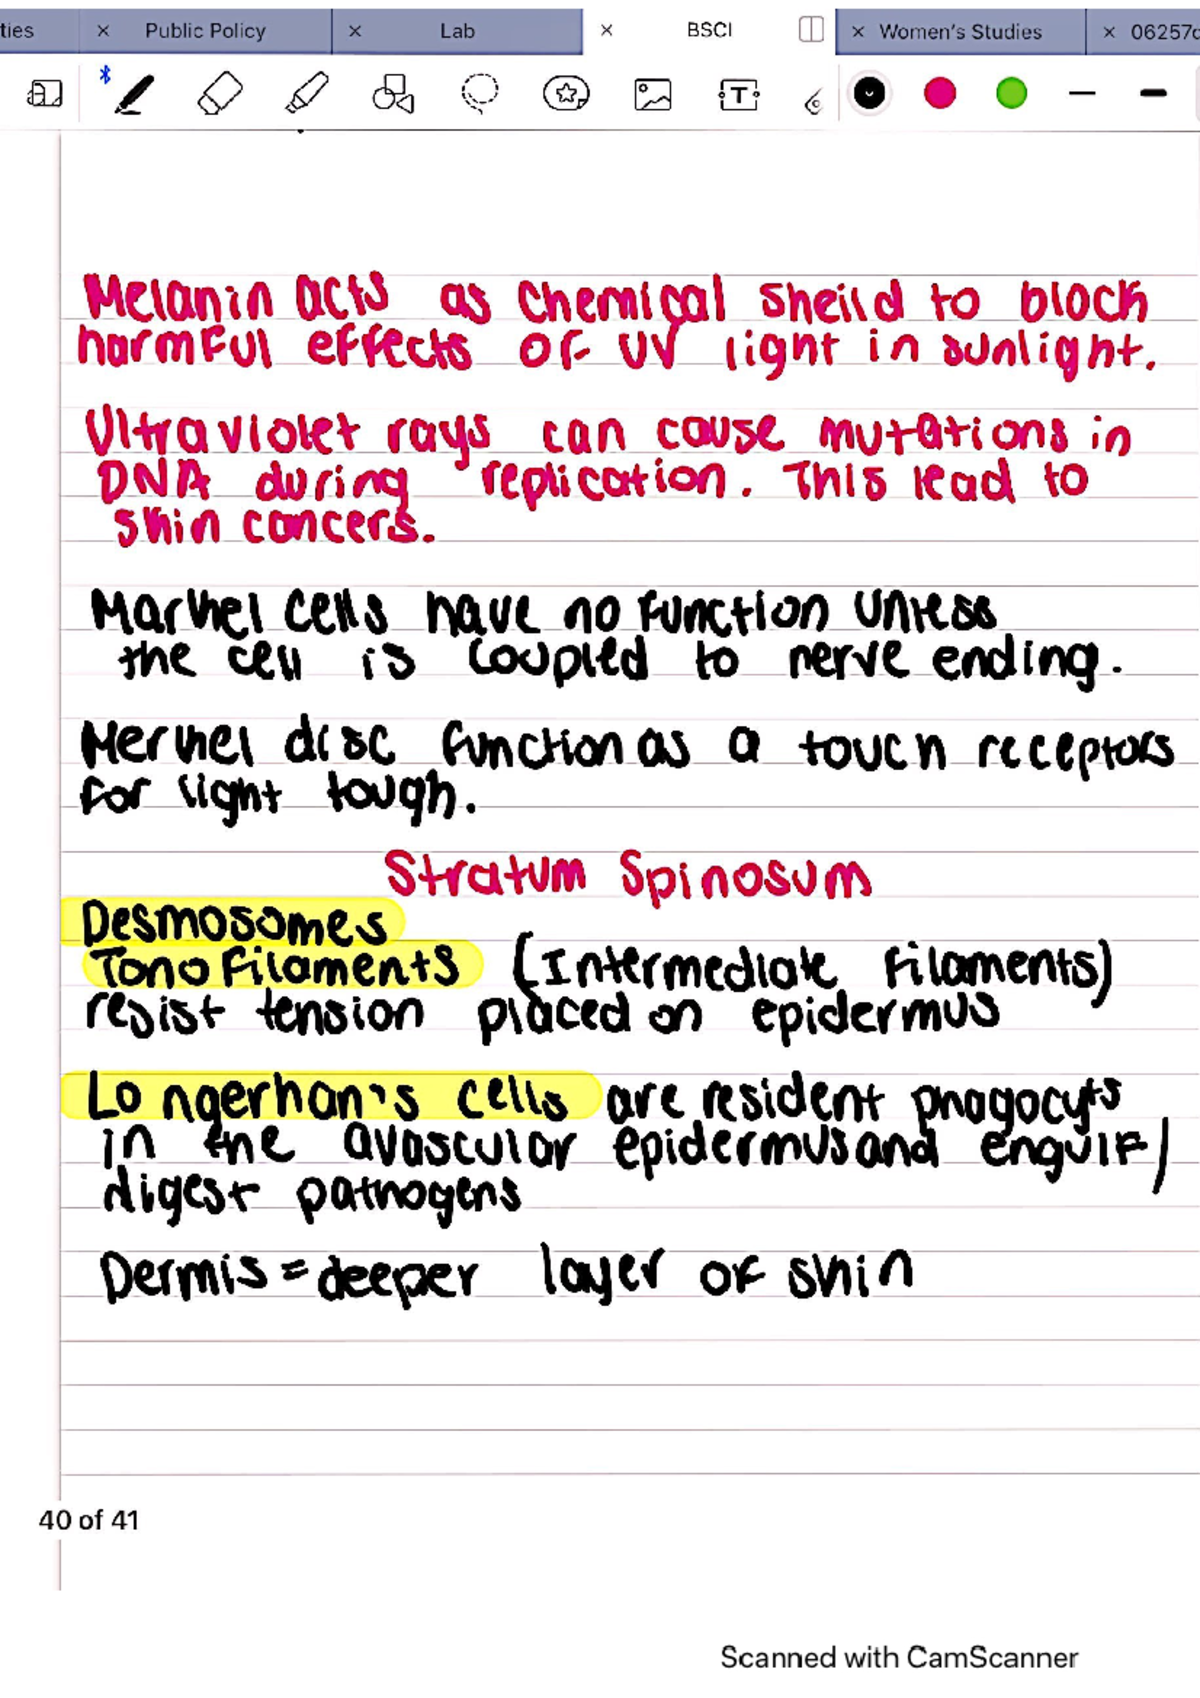 ties
Public Policy
Lab
BSCI
Women's Studies
06257c
T
Melanin acts as chemical sheild to block
harmful effects of UV light in sunlight.
Ultraviolet rays can cause mutations in
DNA during replication. This lead to
skin cancers.
Markel cells have no function unless
the cell is coupled to nerve ending.
Merkel disc function as a touch receptors
for light tough.
Stratum Spinosum
Desmosomes
Tonofilaments (Intermediate filaments)
resist tension placed on epidermus
Langerhan's cells are resident phagocyts
in the avascular epidermus and engulf/
digest pathogens
Dermis = deeper layer of skin
40 of 41
Scanned with CamScanner